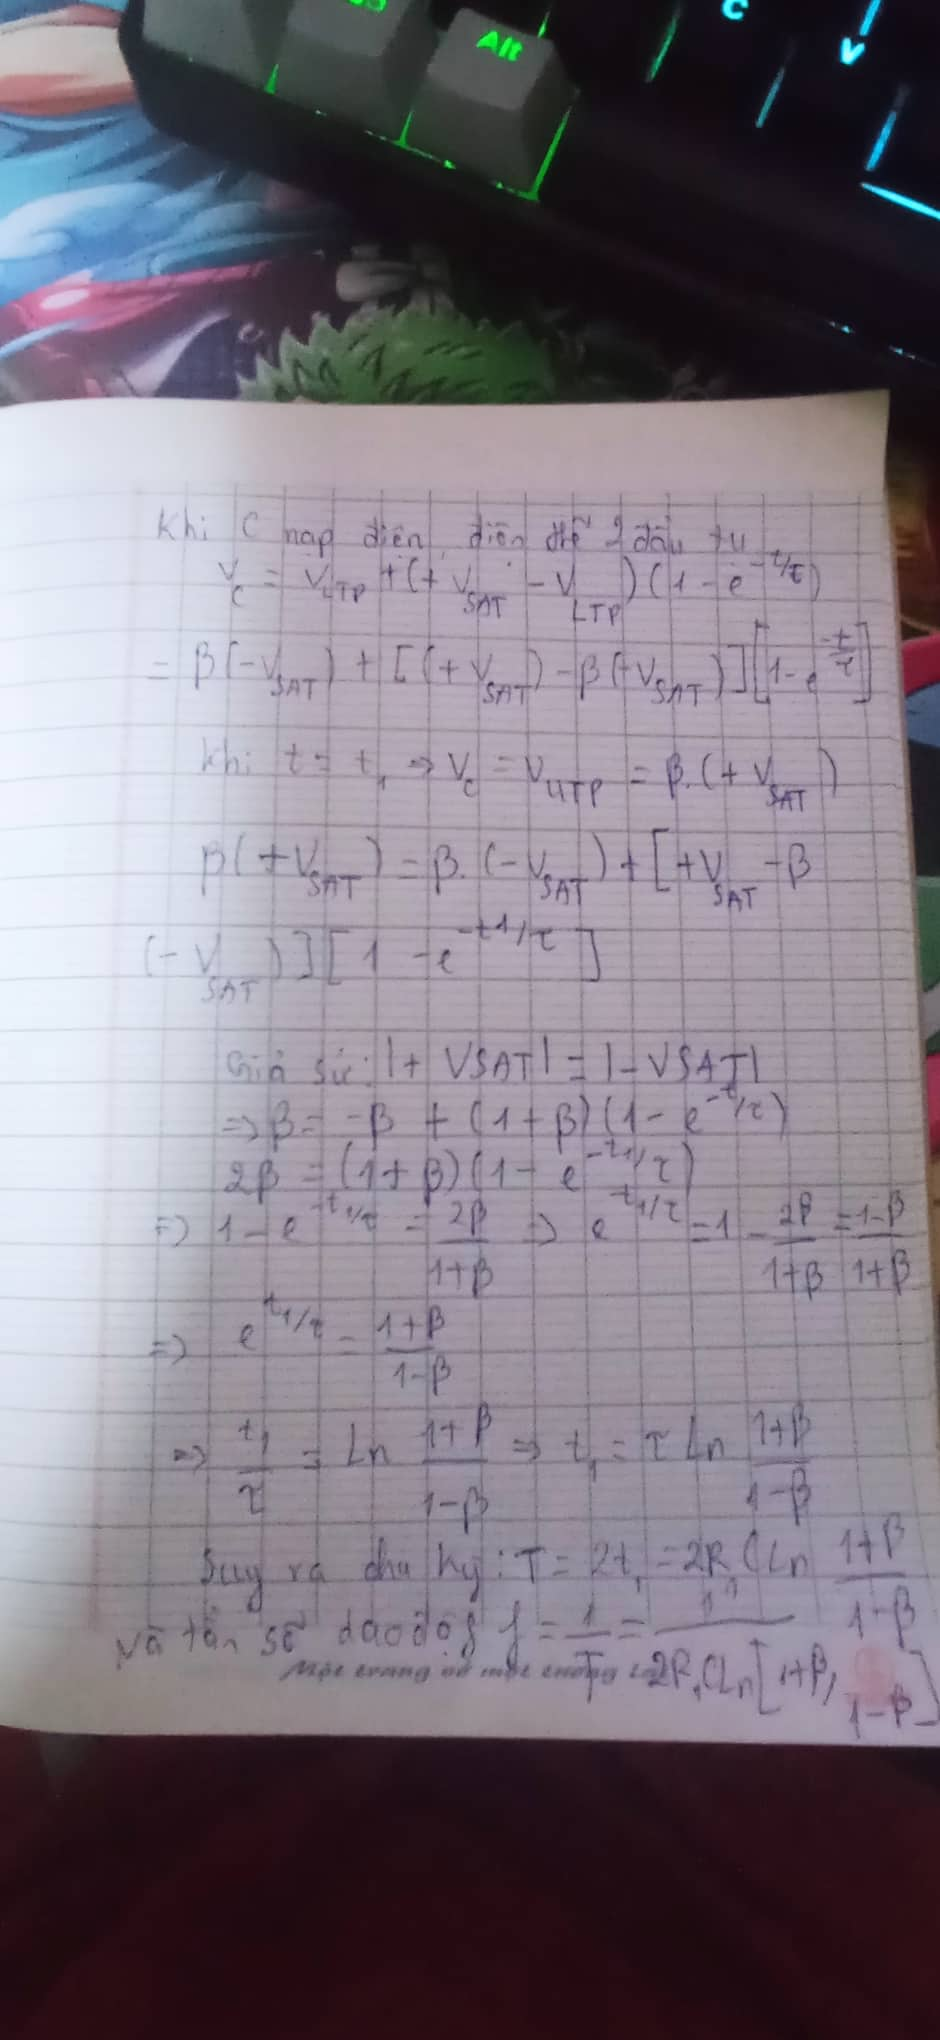 Alt
C
V
Khi C nạp điện, điện thế 2 đầu tụ
V_C = V_LTP + (+V_SAT - V_LTP)(1 - e^-t/τ)
= β(-V_SAT) + [(+V_SAT) - β(-V_SAT)][1 - e^-t/τ]
Khi t = t₁ ⇒ V_C = V_UTP = β.(+V_SAT)
β(+V_SAT) = β.(-V_SAT) + [+V_SAT - β
(-V_SAT)][1 - e^-t1/τ]
Giả sử: |+VSAT| = |-VSAT|
⇒ β = -β + (1+β)(1 - e^-t/τ)
2β = (1+β)(1 - e^-t₁/τ)
⇒ 1 - e^-t₁/τ = 2β/1+β ⇒ e^t₁/τ = 1 - 2β/1+β = 1-β/1+β
⇒ e^t₁/τ = 1+β/1-β
⇒ t₁/τ = Ln 1+β/1-β ⇒ t₁ = τ Ln 1+β/1-β
Suy ra chu kỳ: T = 2t₁ = 2R₁CLn 1+β/1-β
và tần số dao độg f = 1/T = 1/2R₁CLn[1+β/1-β]